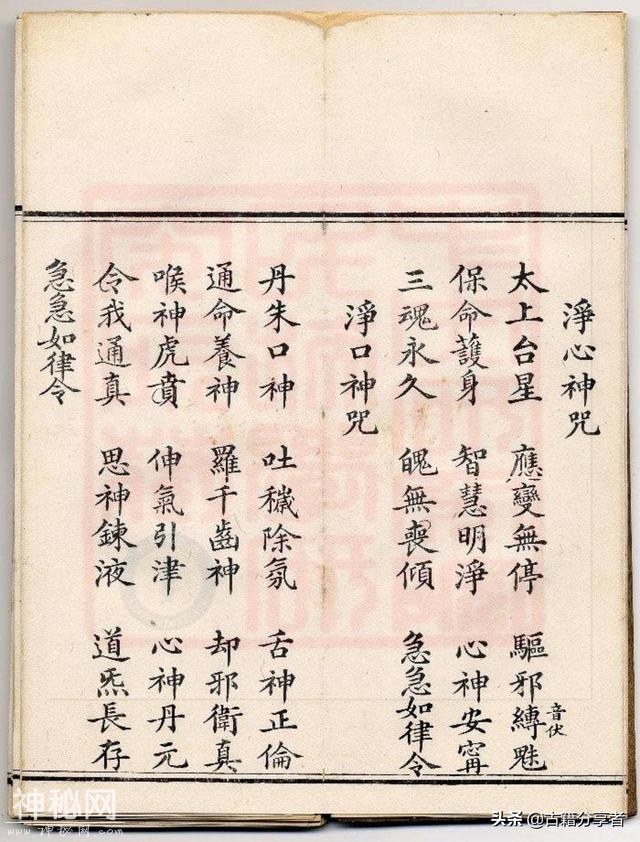 淨心神咒
太上台星 應變無停 驅邪縛魅 音伏
保命護身 智慧明淨 心神安寗
三魂永久 魄無喪傾 急急如律令
淨口神咒
丹朱口神 吐穢除氛 舌神正倫
通命養神 羅千齒神 却邪衛真
喉神虎賁 伸氣引津 心神丹元
令我通真 思神鍊液 道炁長存
急急如律令
神秘网
www.神秘网.com
头条 @古籍分享者